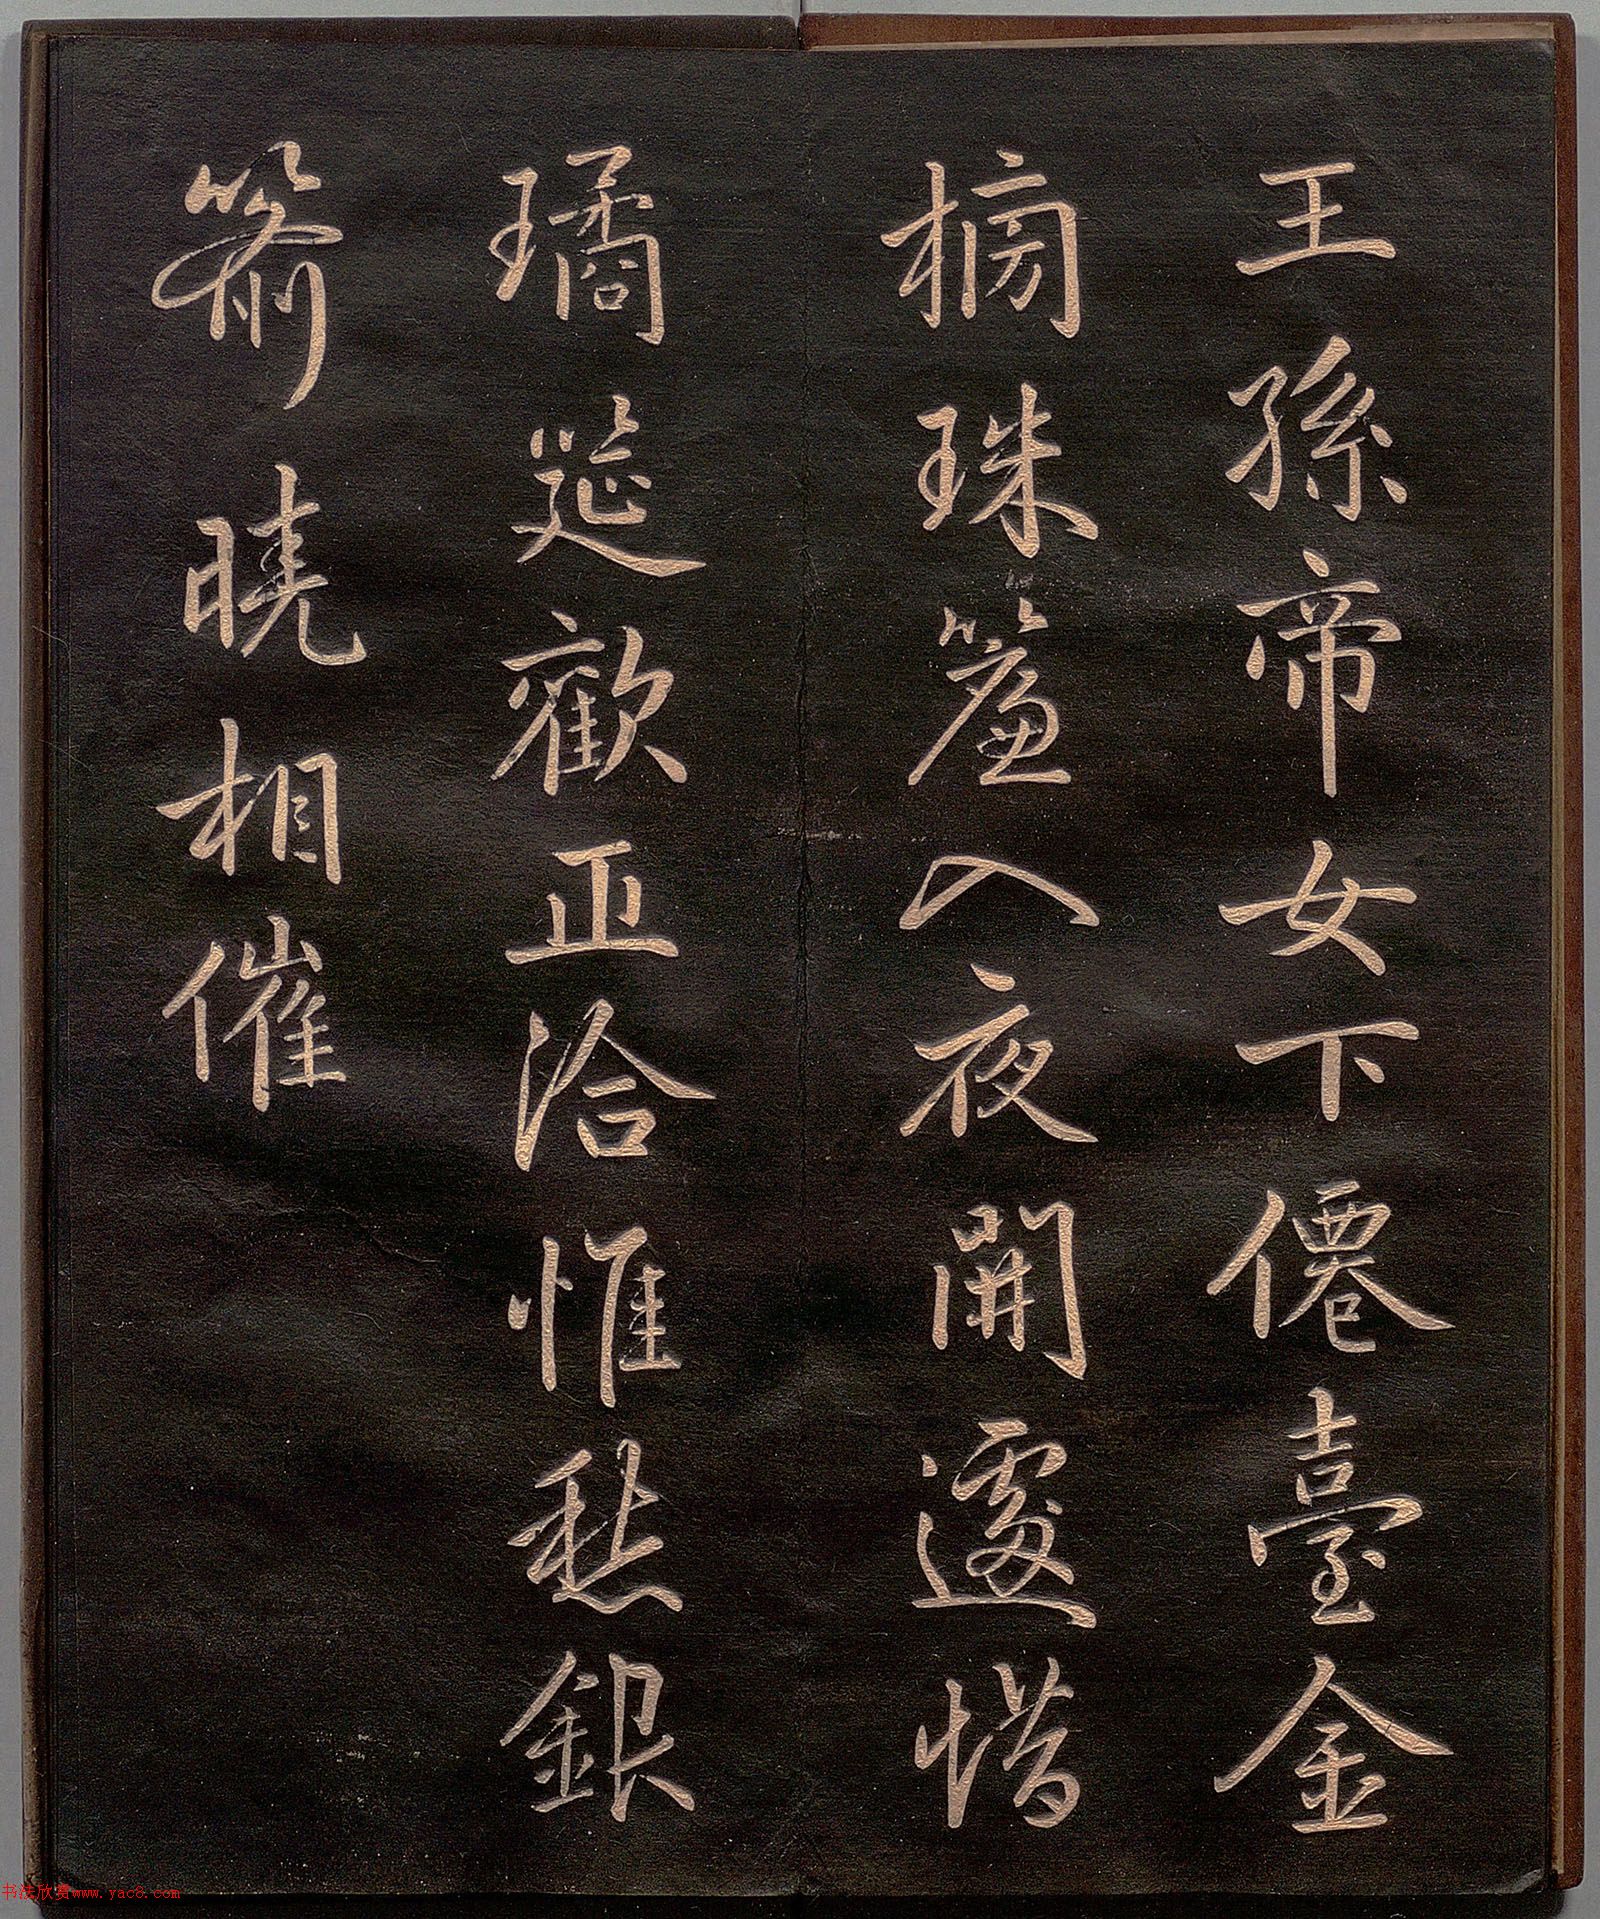 王孫帝女下僊臺金
牓珠簾入夜開遽惜
璚筵歡正洽惟愁銀
箭曉相催
书法欣赏www.yac8.com